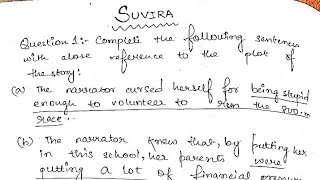 SUVIRA
Question 1:- Complete the following sentences
with close reference to the plot of
the story:
(a) The narrator cursed herself for being stupid
enough to volunteer to run the 800 m
race.
(b) The narrator knew that, by putting her
in this school, her parents were
putting a lot of financial pressure